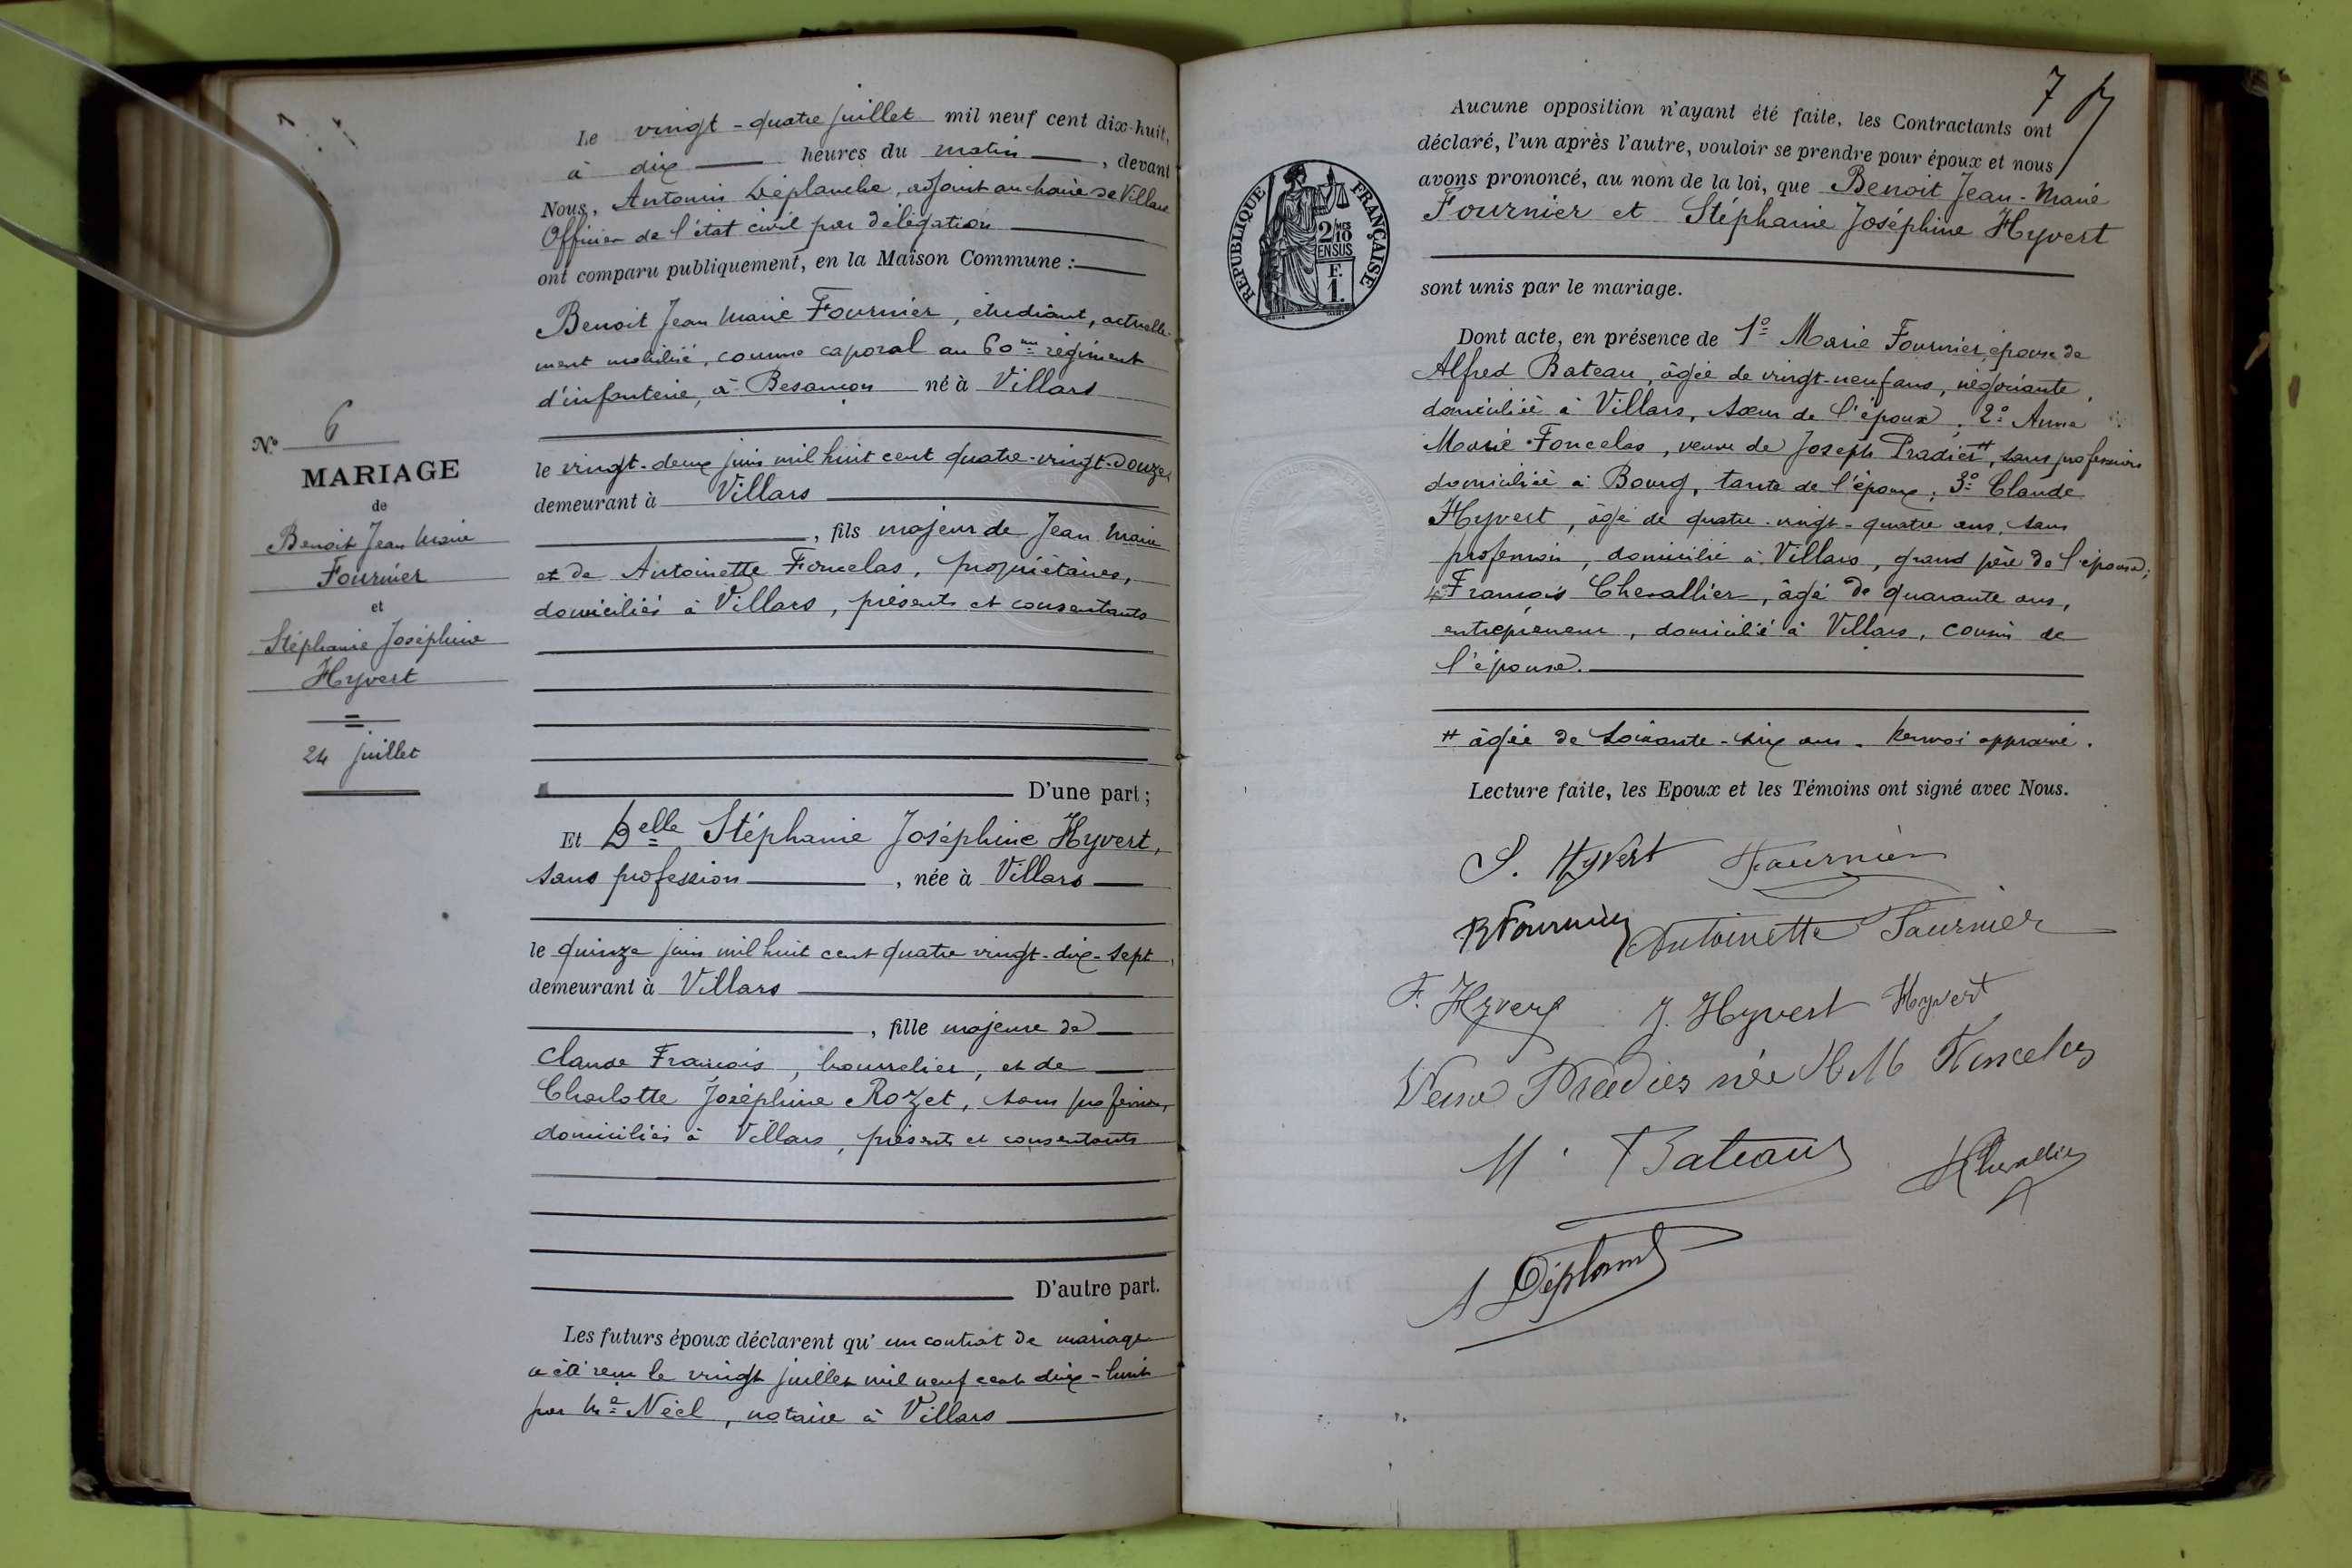 Nº 6
MARIAGE
de
Benoit Jean Marie
Fournier
et
Stéphanie Joséphine
Hyvert
24 juillet
Le vingt-quatre juillet mil neuf cent dix-huit,
à dix heures du matin, devant
Nous, Antonin Déplanche, adjoint au maire de Villars
Officier de l'état civil par délégation
ont comparu publiquement, en la Maison Commune :
Benoit Jean Marie Fournier, étudiant, actuelle-
ment mobilisé, comme caporal au 60me régiment
d'infanterie, à Besançon né à Villars
le vingt-deux juin mil huit cent quatre-vingt-douze
demeurant à Villars
, fils majeur de Jean Marie
et de Antoinette Foncelas, propriétaires,
domiciliés à Villars, présents et consentants
D'une part ;
Et Delle Stéphanie Joséphine Hyvert,
sans profession, née à Villars
le quinze juin mil huit cent quatre vingt-dix-sept,
demeurant à Villars
, fille majeure de
Claude François, bourrelier, et de
Charlotte Joséphine Rozet, sans profession,
domiciliés à Villars, présents et consentants
D'autre part.
Les futurs époux déclarent qu'un contrat de mariage
a été reçu le vingt juillet mil neuf cent dix-huit
par Me Néel, notaire à Villars
7
REPUBLIQUE FRANÇAISE
2/10MES
EN SUS
F.
1.
Aucune opposition n'ayant été faite, les Contractants ont
déclaré, l'un après l'autre, vouloir se prendre pour époux et nous
avons prononcé, au nom de la loi, que Benoit Jean-Marie
Fournier et Stéphanie Joséphine Hyvert
sont unis par le mariage.
Dont acte, en présence de 1º Marie Fournier, épouse de
Alfred Bateau, âgée de vingt-neuf ans, négociante,
domiciliée à Villars, sœur de l'époux ; 2º Anna
Marie Foncelas, veuve de Joseph Pradier #, sans profession
domiciliée à Bourg, tante de l'époux ; 3º Claude
Hyvert, âgé de quatre-vingt-quatre ans, sans
profession, domicilié à Villars, grand père de l'épouse ;
4º François Chevallier, âgé de quarante ans,
entrepreneur, domicilié à Villars, cousin de
l'épouse.
# âgée de soixante-six ans. Renvoi approuvé.
Lecture faite, les Epoux et les Témoins ont signé avec Nous.
S. Hyvert Fournier
B Fournier Antoinette Fournier
F. Hyvert J. Hyvert Hyvert
Veuve Pradier née Foncelas
M. Bateau Chevallier
A Déplanche